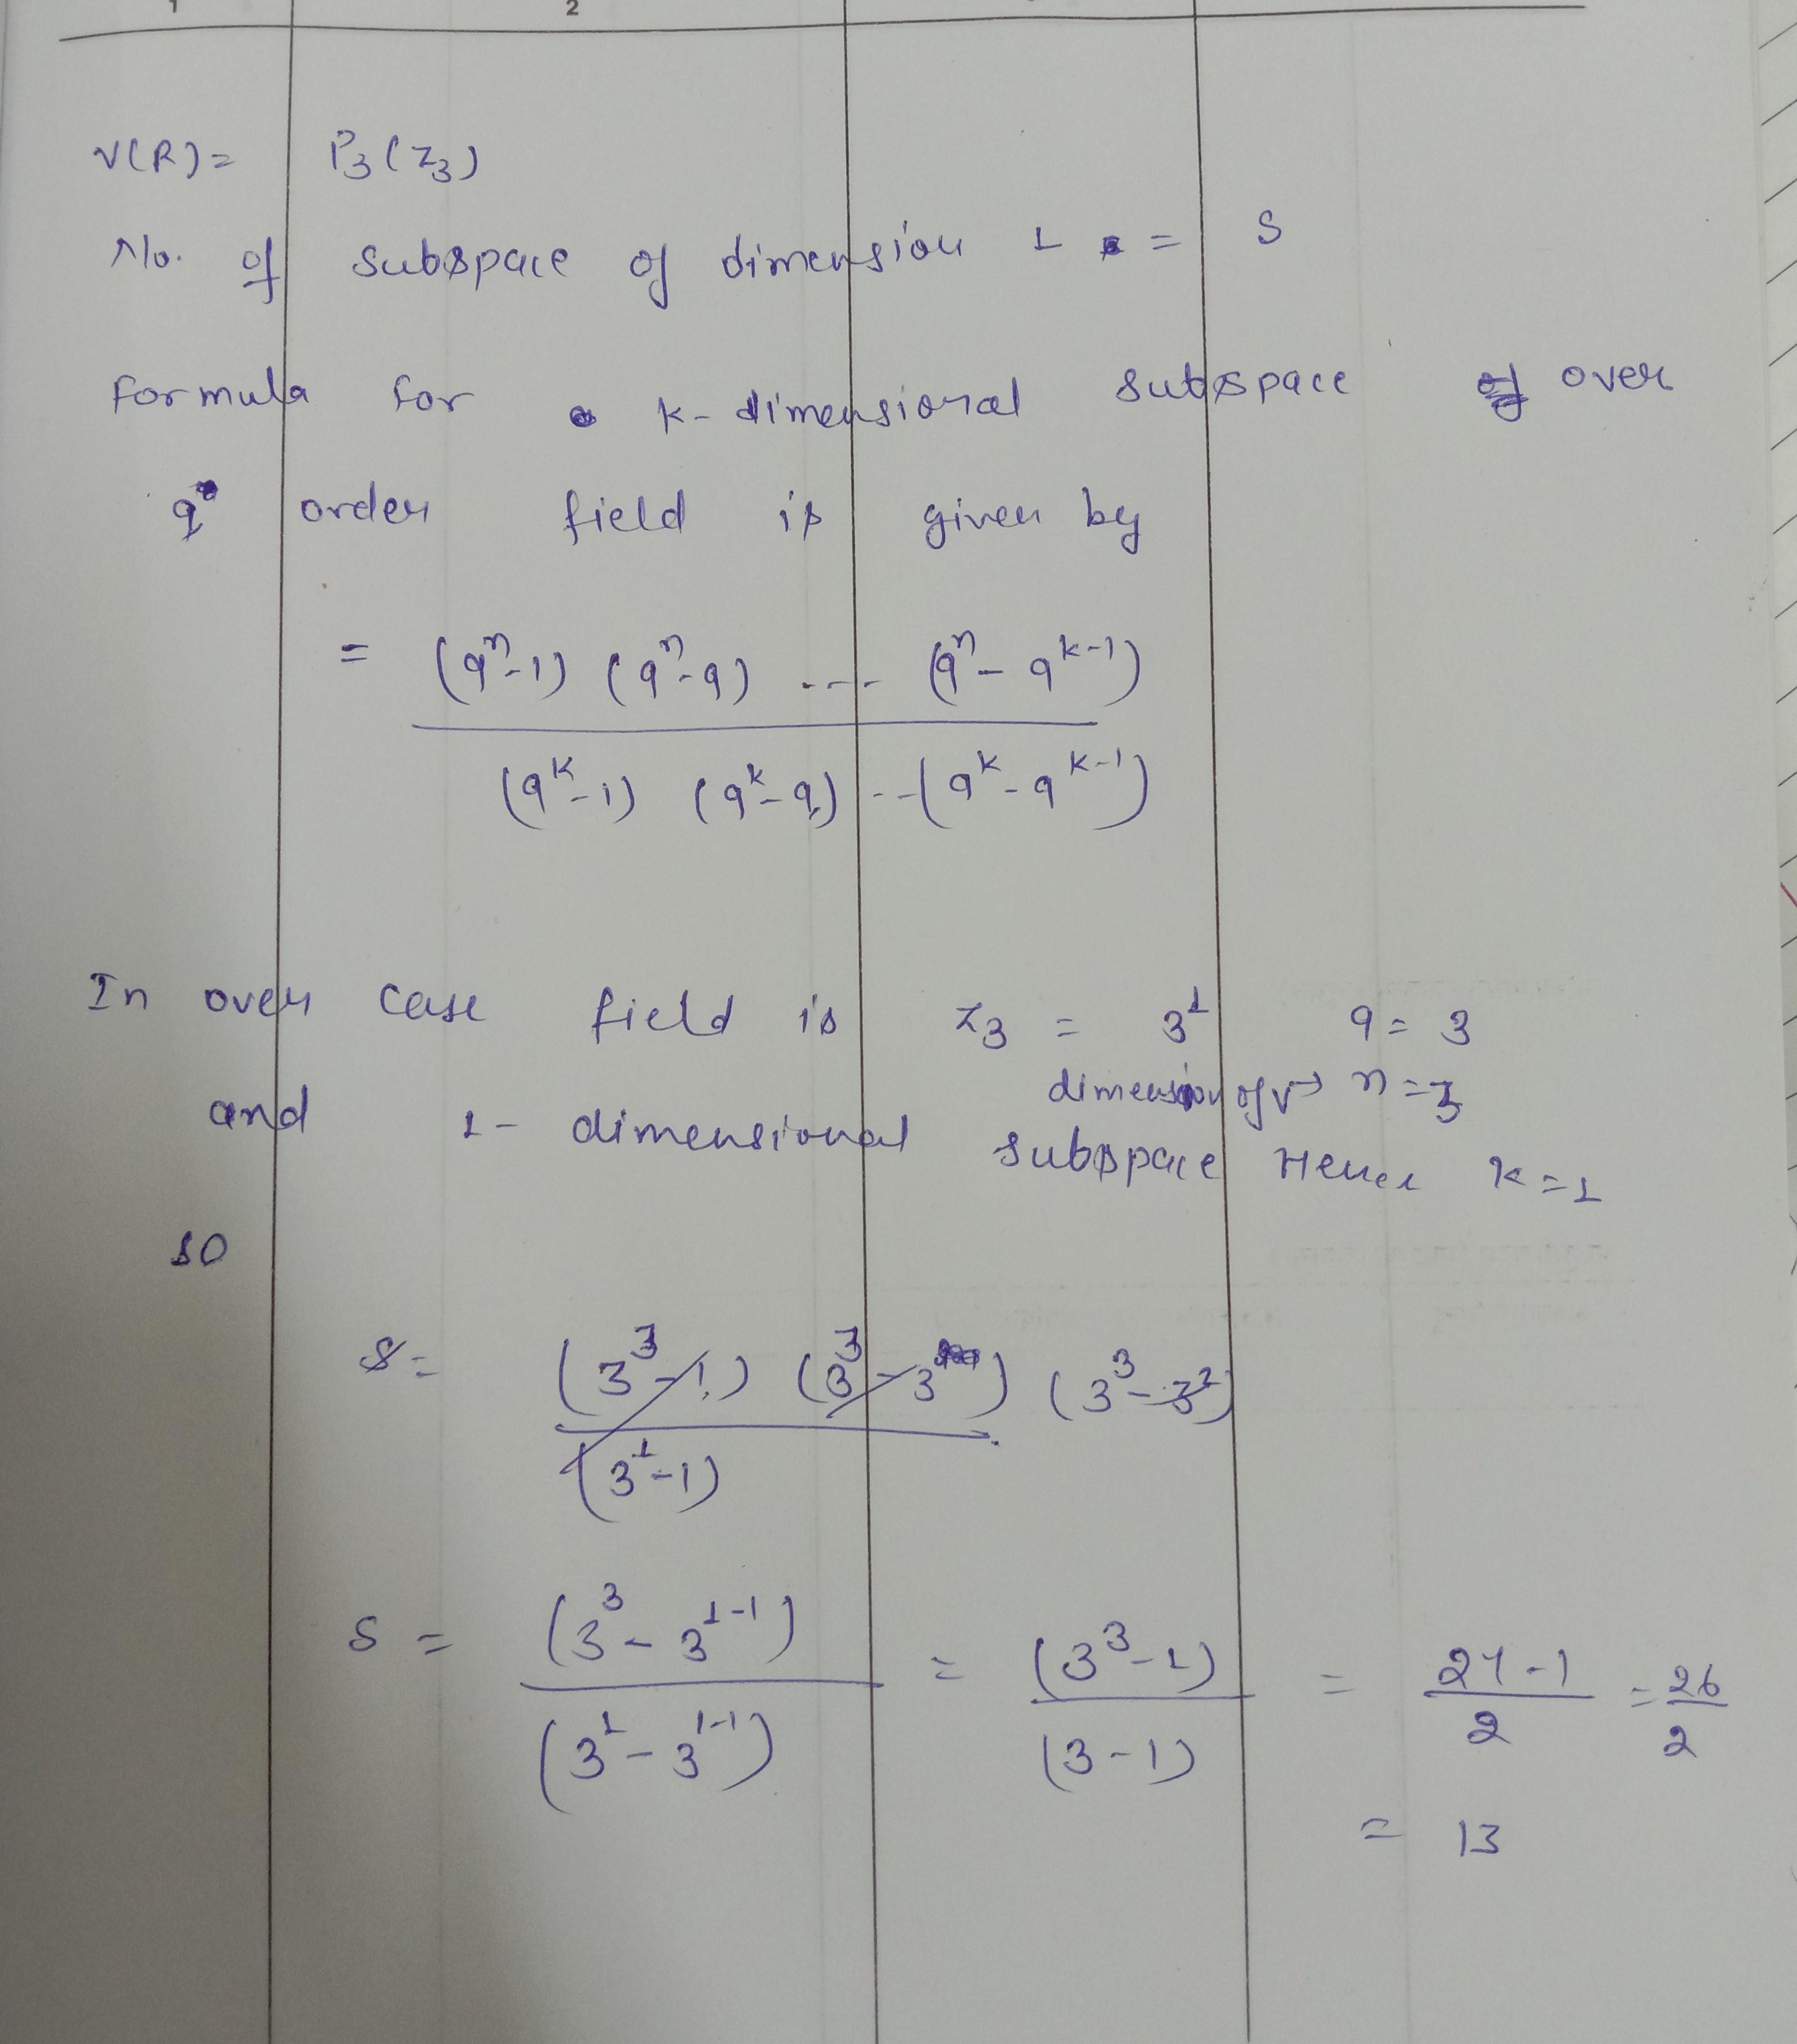 1 2
V(R) = P₃(Z₃)
No. of subspace of dimension 1 = S
formula for k-dimensional subspace over
q order field is given by
= (qⁿ-1) (qⁿ-q) ---- (qⁿ- qᵏ⁻¹)
(qᵏ-1) (qᵏ-q) --(qᵏ-qᵏ⁻¹)
In over case field is Z₃ = 3¹ q = 3
dimension of V → n = 3
and 1- dimensional subspace Hence k = 1
so
S = (3³-1) (3³-3) (3³-3²)
(3¹-1)
S = (3³- 3¹⁻¹) = (3³-1) = 27-1 = 26
(3¹- 3¹⁻¹) (3-1) 2 2
= 13